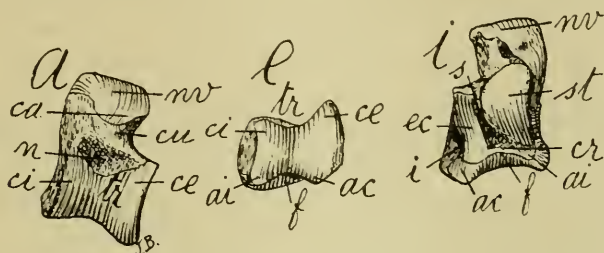 a
nv
ca
cu
n
ci
tr
ce
B.
e
tr
ci
ce
ai
ac
f
i
nv
s
st
ec
cr
i
ai
ac
f